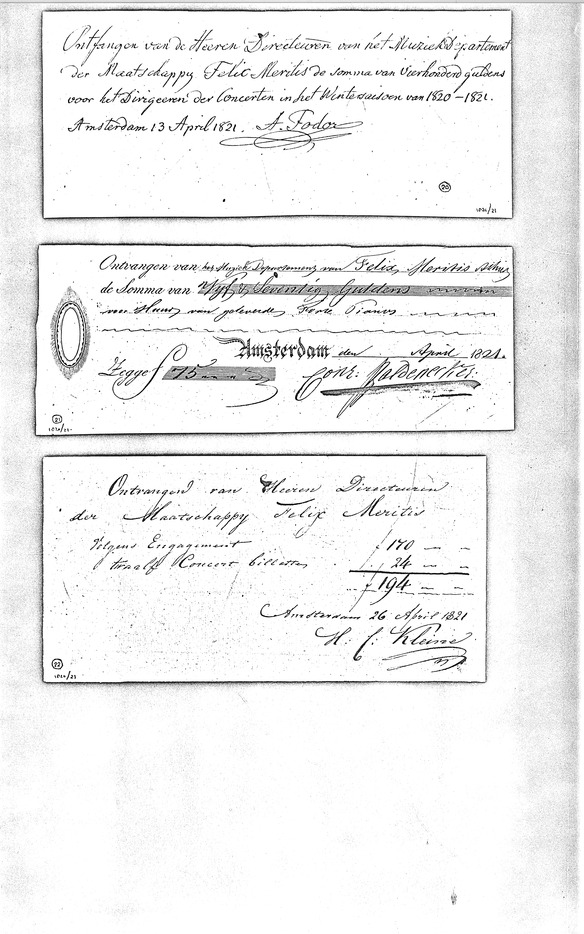 Ontfangen van de Heeren Directeuren van het Muziek Departement
der Maatschappy Felix Meritis de somma van Vierhonderd guldens
voor het Dirigeeren der Concerten in het Wintersaisoen van 1820-1821.
Amsterdam 13 April 1821. A. Fodor
20
1820/21
Ontvangen van het Muziek Departement van Felix Meritis
de Somma van Vyf & Seventig Guldens
voor Huur van geleverde Forte Pianos
Amsterdam den April 1821.
Zegge f 75
21
1820/21
Ontvangen van Heeren Directeuren
der Maatschappy Felix Meritis
Volgens Engagement f 170 — —
twaalf Concert billetten 24 — —
f 194 — —
Amsterdam 26 April 1821
H. C. Kleine
22
1820/21